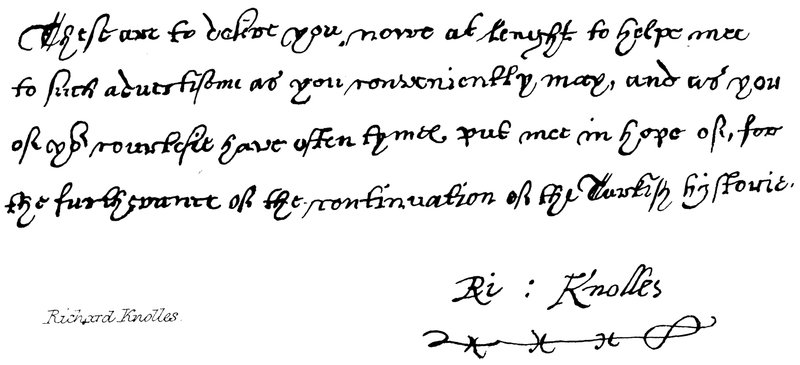 These are to desire you, nowe at lenght to helpe mee
to such advertisme as you conveniently may, and as you
of yor courtesie have often tymes put mee in hope of, for
the furtherance of the continuation of the Turkish hystorie.
Ri : Knolles
Richard Knolles